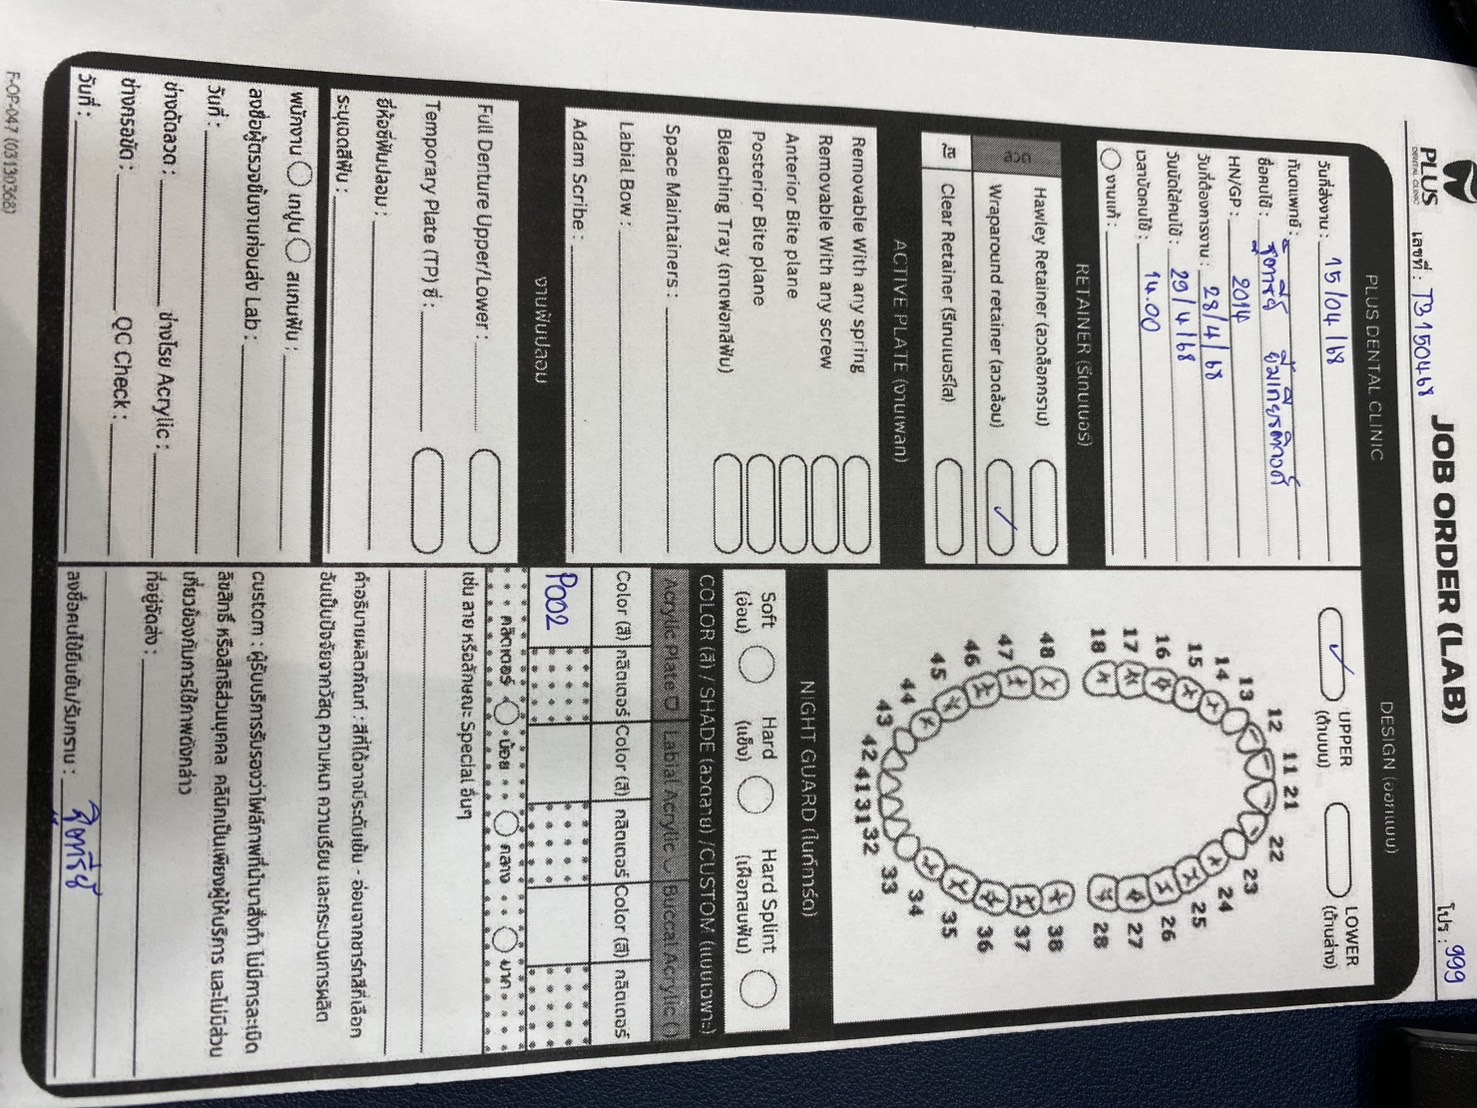 PLUS
DENTAL CLINIC
เลขที่ : TB150468
JOB ORDER (LAB)
โปร : 999
PLUS DENTAL CLINIC
วันที่ส่งงาน : 15/04/68
ทันตแพทย์ :
ชื่อคนไข้ :
HN/GP : 2014
วันที่ต้องการงาน : 28/4/68
วันนัดใส่คนไข้ : 29/4/68
เวลานัดคนไข้ : 14.00
งานแก้ :
RETAINER (รีเทนเนอร์)
ลวด
Hawley Retainer (ลวดล็อกกราม)
Wraparound retainer (ลวดล้อม) ✓
ใส
Clear Retainer (รีเทนเนอร์ใส)
ACTIVE PLATE (งานเพลท)
Removable With any spring
Removable With any screw
Anterior Bite plane
Posterior Bite plane
Bleaching Tray (ถาดฟอกสีฟัน)
Space Maintainers :
Labial Bow :
Adam Scribe :
งานฟันปลอม
Full Denture Upper/Lower :
Temporary Plate (TP) ซี่ :
ยี่ห้อซี่ฟันปลอม :
ระบุเฉดสีฟัน :
พนักงาน เทปูน สแกนฟัน :
ลงชื่อผู้ตรวจชิ้นงานก่อนส่ง Lab :
วันที่ :
ช่างดัดลวด : ช่างโรย Acrylic :
ช่างกรอขัด : QC Check :
วันที่ :
DESIGN (ออกแบบ)
✓ UPPER (ด้านบน) LOWER (ด้านล่าง)
18 17 16 15 14 13 12 11 21 22 23 24 25 26 27 28
48 47 46 45 44 43 42 41 31 32 33 34 35 36 37 38
NIGHT GUARD (ไนท์การ์ด)
Soft (อ่อน) Hard (แข็ง) Hard Splint (เฝือกสบฟัน)
COLOR (สี) / SHADE (ลวดลาย) /CUSTOM (แบบเฉพาะ)
Acrylic Plate Labial Acrylic Buccal Acrylic ( )
Color (สี) กลิตเตอร์ Color (สี) กลิตเตอร์ Color (สี) กลิตเตอร์
P002
กลิตเตอร์ น้อย กลาง มาก
เช่น ลาย หรือลักษณะ Special อื่นๆ
คำอธิบายผลิตภัณฑ์ : สีที่ได้อาจมีระดับเข้ม - อ่อนจากชาร์ทสีที่เลือก
อันเป็นปัจจัยจากวัสดุ ความหนา ความเรียบ และกระบวนการผลิต
custom : ผู้รับบริการรับรองว่าไฟล์ภาพที่นำมาสั่งทำ ไม่มีการละเมิด
ลิขสิทธิ์ หรือสิทธิส่วนบุคคล คลินิกเป็นเพียงผู้ให้บริการ และไม่มีส่วน
เกี่ยวข้องกับการใช้ภาพดังกล่าว
ที่อยู่จัดส่ง :
ลงชื่อคนไข้ยืนยัน/รับทราบ :
F-OP-047 (03130368)